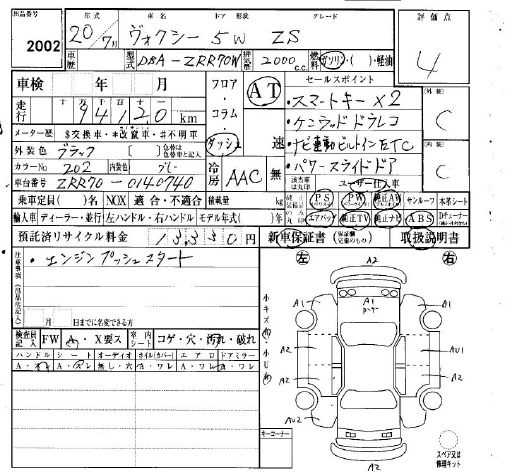 出品番号
2002
年式 車名 ドア 形状 グレード
20/7月 ヴォクシー 5W ZS
評価点
4
車歴
型式 DBA-ZRR70W 排気量 2000 c.c. 燃料 ガソリン・( )・軽油
車検 年 月
走行 94120 km
メーター歴 $交換車・*改竄車・#不明車
外装色 ブラック
カラーNo 202 内装色 グレー
車台番号 ZRR70-0140740
フロア・コラム・ダッシュ
AT
速
冷房 AAC 無
セールスポイント
・スマートキー×2
・ケンウッドドラレコ
・ナビ連動ビルトインETC
・パワースライドドア
ユーザー買入車
外装 C
内装 C
乗車定員( )名 NOX 適合・不適合 積載量 kg
PS PW 純正AW サンルーフ 本革シート
輸入車 ディーラー・並行 左ハンドル・右ハンドル モデル年式( )年
エアバッグ 純正TV 純正ナビ ABS
預託済リサイクル料金 13,330円
新車保証書 取扱説明書
注意事項
・エンジンプッシュスタート
月 日までに名変できる方
検査員記入 FW A・X要ス 室内シート コゲ・穴・汚れ・破れ
ハンドル シート オーディオ ホイル(カバー) エアロ ドアミラー
A・スレ A・スレ 無し・穴 A・ワレ A・ワレ A・ワレ
キーコーナー
左 右
A2
A1 A1 A1
A2 AU1
A2 A2
AU2 A2
A2
スペア又は修理キット